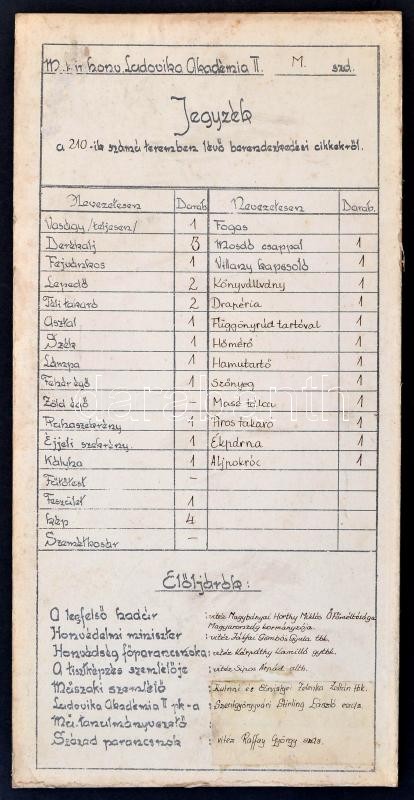 M. kir. honv. Ludovika Akadémia II. M. szd.
Jegyzék
a 210-ik számú teremben lévő berendezkedési cikkekről.
Nevezetesen Darab Nevezetesen Darab.
Vaságy /teljesen/ 1 Fogas
Derékalj 3 Mosdó csappal 1
Fejvánkos 1 Villany kapcsoló 1
Lepedő 2 Könyvállvány 1
Téli takaró 2 Drapéria 1
Asztal 1 Függönyrúd tartóval 1
Szék 1 Hőmérő 1
Lámpa 1 Hamutartó 1
Fehér égő 1 Szőnyeg 1
Zöld égő 1 Mosó tálca 1
Ruhaszekrény 1 Piros takaró 1
Éjjeli szekrény. 1 Ékpárna 1
Kályha 1 Aljpokróc 1
Fűtőtest –
Feszület 1
Kép 4
Szemétkosár –
Elöljárók:
A legfelső hadúr : vitéz Nagybányai Horthy Miklós Ő Főméltósága
Magyarország kormányzója.
Honvédelmi miniszter : vitéz Jákfai Gömbös Gyula tbk.
Honvédség főparancsnoka : vitéz Kárpáthy Kamilló gytbk.
A tisztképzés szemlélője : vitéz Sipos Árpád altb.
Műszaki szemlélő Zelinka Zoltán tbk.
Ludovika Akadémia II pk-a : Szentgyörgyvári Stirling László ezds.
Mű. tanulmányvezető :
Század parancsnok : vitéz Raffay György szds.